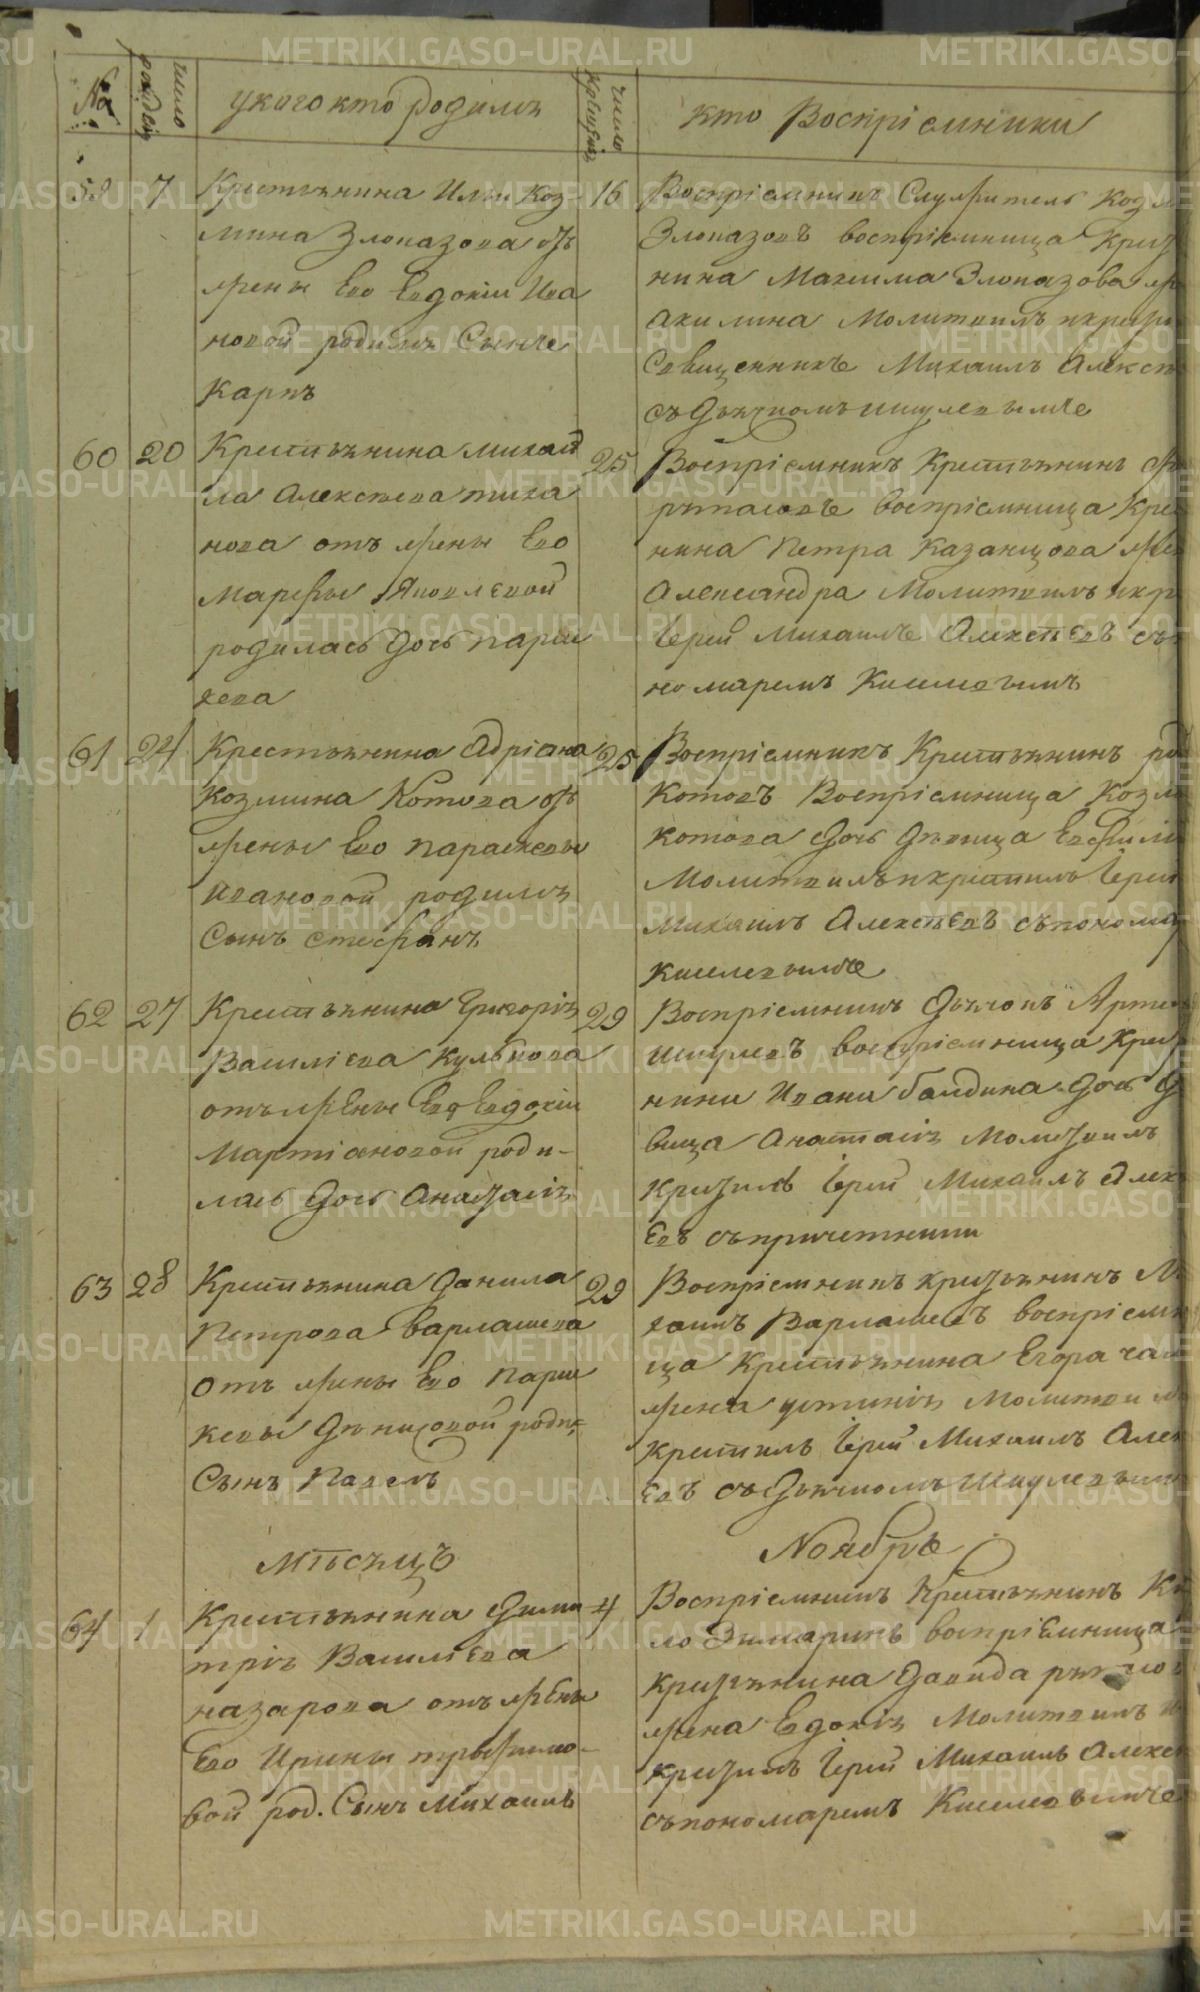 №
число рожден
у кого кто родился
число крещен
кто Восприемники
7
Крестьянина Ильи Коз
мина Злоказова отъ
жены Его Евдокіи Ива
новой родился Сынъ
Карпъ
16
Воспріемникъ Служитель Козма
Злоказовъ воспріемница Крест
нина Максима Злоказова
Акилина Молитвилъ и крести
Священникъ Михаилъ Алексѣ
съ Дьячкомъ Ишулевымъ
60
20
Крестьянина Михаи
ла Алексѣева Тиха
нова отъ жены Его
Марѳы Яковлевой
родилась Дочь Парас
кева
25
Воспріемникъ Крестьянинъ
воспріемница Крес
нина Петра Казанцова же
Александра Молитвилъ и кр
Іерей Михаилъ Алексѣевъ съ
номаремъ Киселевымъ
61
24
Крестьянина Адріана
Козмина Котова отъ
жены Его Параскевы
Ивановой родился
Сынъ Стефанъ
25
Воспріемникъ Крестьянинъ
Котовъ Воспріемница Козмы
Котова Дочь Дѣвица
Молитвилъ и крестилъ Іерей
Михаилъ Алексѣевъ съ понома
Киселевымъ
62
27
Крестьянина Григорія
Василіева Кулькова
отъ жены Его Евдокіи
Мартіановой роди-
лась Дочь Анастасія
29
Воспріемникъ Дьячокъ Артем
Ишулевъ воспріемница Крест
нина Ивана Балдина Дочь Д
вица Анастасія Молитвилъ
Крестилъ Іерей Михаилъ Алекс
Евъ съ причетники
63
28
Крестьянина Данила
Петрова Варлашева
отъ жены Его Парас
кевы Денисовой родил
Сынъ Павелъ
29
Воспріемникъ крестьянинъ М
хаилъ Варлашевъ воспріемн
ца Крестьянина Егора
жена Устинія Молитвил
Крестилъ Іерей Михаилъ Алек
Евъ съ Дьячкомъ Ишулевым
Мѣсяцъ
Ноябрь
64
1
Крестьянина Дими
трія Василіева
Назарова отъ жены
Его Ирины Трыфано-
вой род. Сынъ Михаилъ
4
Воспріемникъ Крестьянинъ
воспріемница
Крестьянина Давида
жена Евдокія Молитвилъ и
крестилъ Іерей Михаилъ Алекс
съ пономаремъ Киселевымъ
METRIKI.GASO-URAL.RU